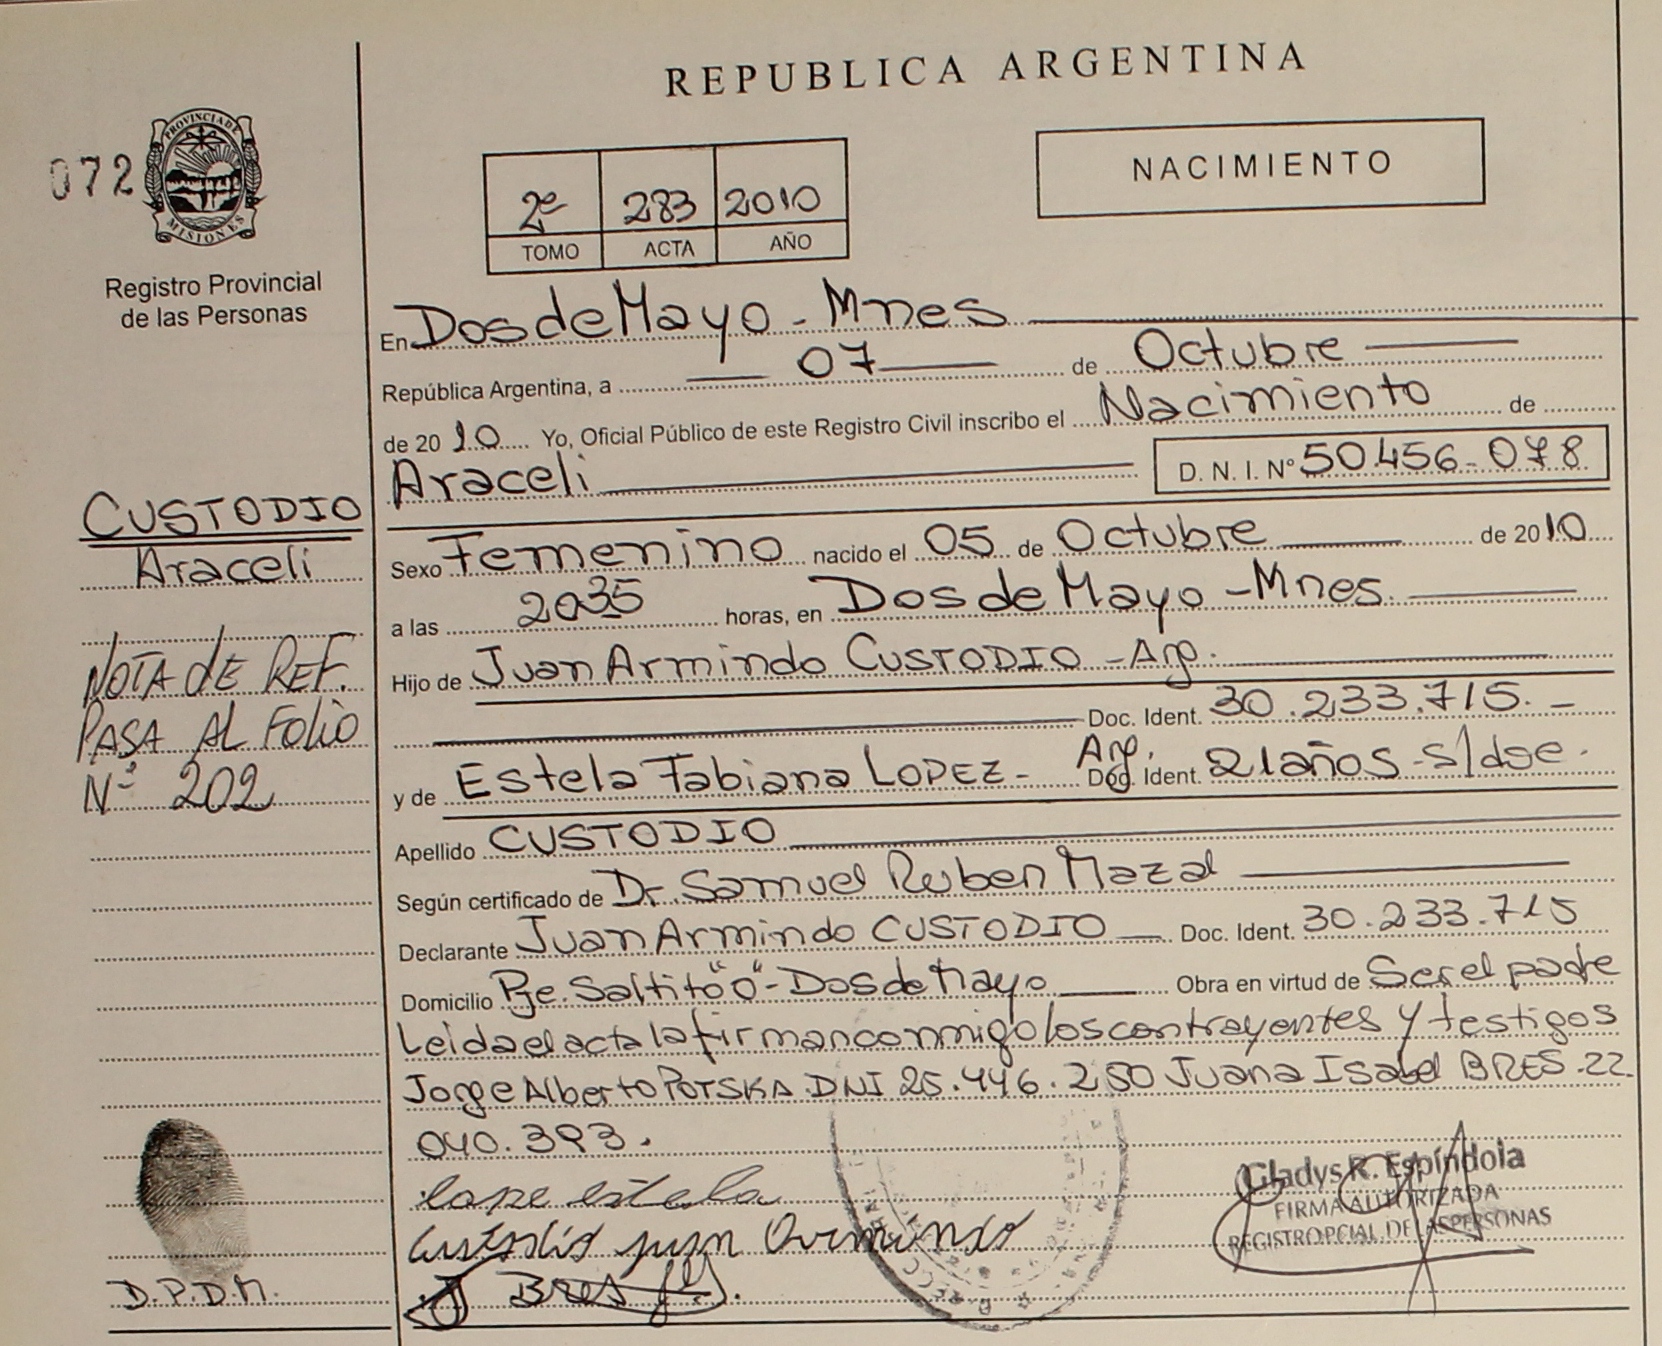 REPUBLICA ARGENTINA
072
PROVINCIA DE
MISIONES
Registro Provincial
de las Personas
2º 283 2010
TOMO ACTA AÑO
NACIMIENTO
En Dos de Mayo - Mnes
República Argentina, a 07 de Octubre
de 2010 Yo, Oficial Público de este Registro Civil inscribo el Nacimiento de
Araceli D. N. I. Nº 50.456.078
CUSTODIO
Araceli
NOTA DE REF.
PASA AL FOLIO
Nº 202
Sexo Femenino nacido el 05 de Octubre de 2010
a las 2035 horas, en Dos de Mayo - Mnes.
Hijo de Juan Armindo CUSTODIO - Arg.
Doc. Ident. 30.233.715. -
y de Estela Fabiana LOPEZ - Arg. Doc. Ident. 21 años - s/doc.
Apellido CUSTODIO
Según certificado de Dr. Samuel Ruben Mazal
Declarante Juan Armindo CUSTODIO Doc. Ident. 30.233.715
Domicilio Pje. Saltito "0" - Dos de Mayo Obra en virtud de Ser el padre
Leida el acta la firman conmigo los contrayentes y testigos
Jorge Alberto POTSKA DNI 25.446.250 Juana Isabel BRES. 22.
040.393.
lope estela
custodio juan Armindo
Bres
D.P.D.M.
Gladys R. Espíndola
FIRMA AUTORIZADA
REGISTRO PCIAL. DE LAS PERSONAS